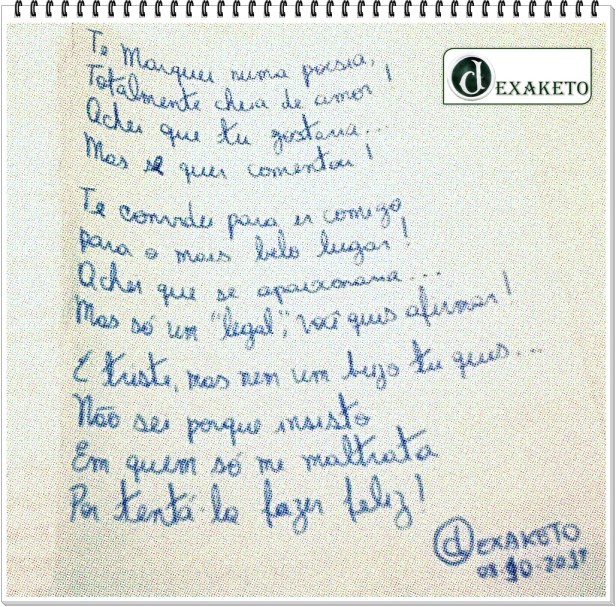 Te Marquei numa poesia,
Totalmente cheia de amor!
Achei que tu gostaria...
Mas se quer comentou!
Te convidei para ir comigo
para o mais belo lugar!
Achei que se apaixonaria...
Mas só um "legal", você quis afirmar!
É triste, mas nem um beijo tu quis...
Não sei porque insisto
Em quem só me maltrata
Por tentá-la fazer feliz!
dEXAKETO
dEXAKETO